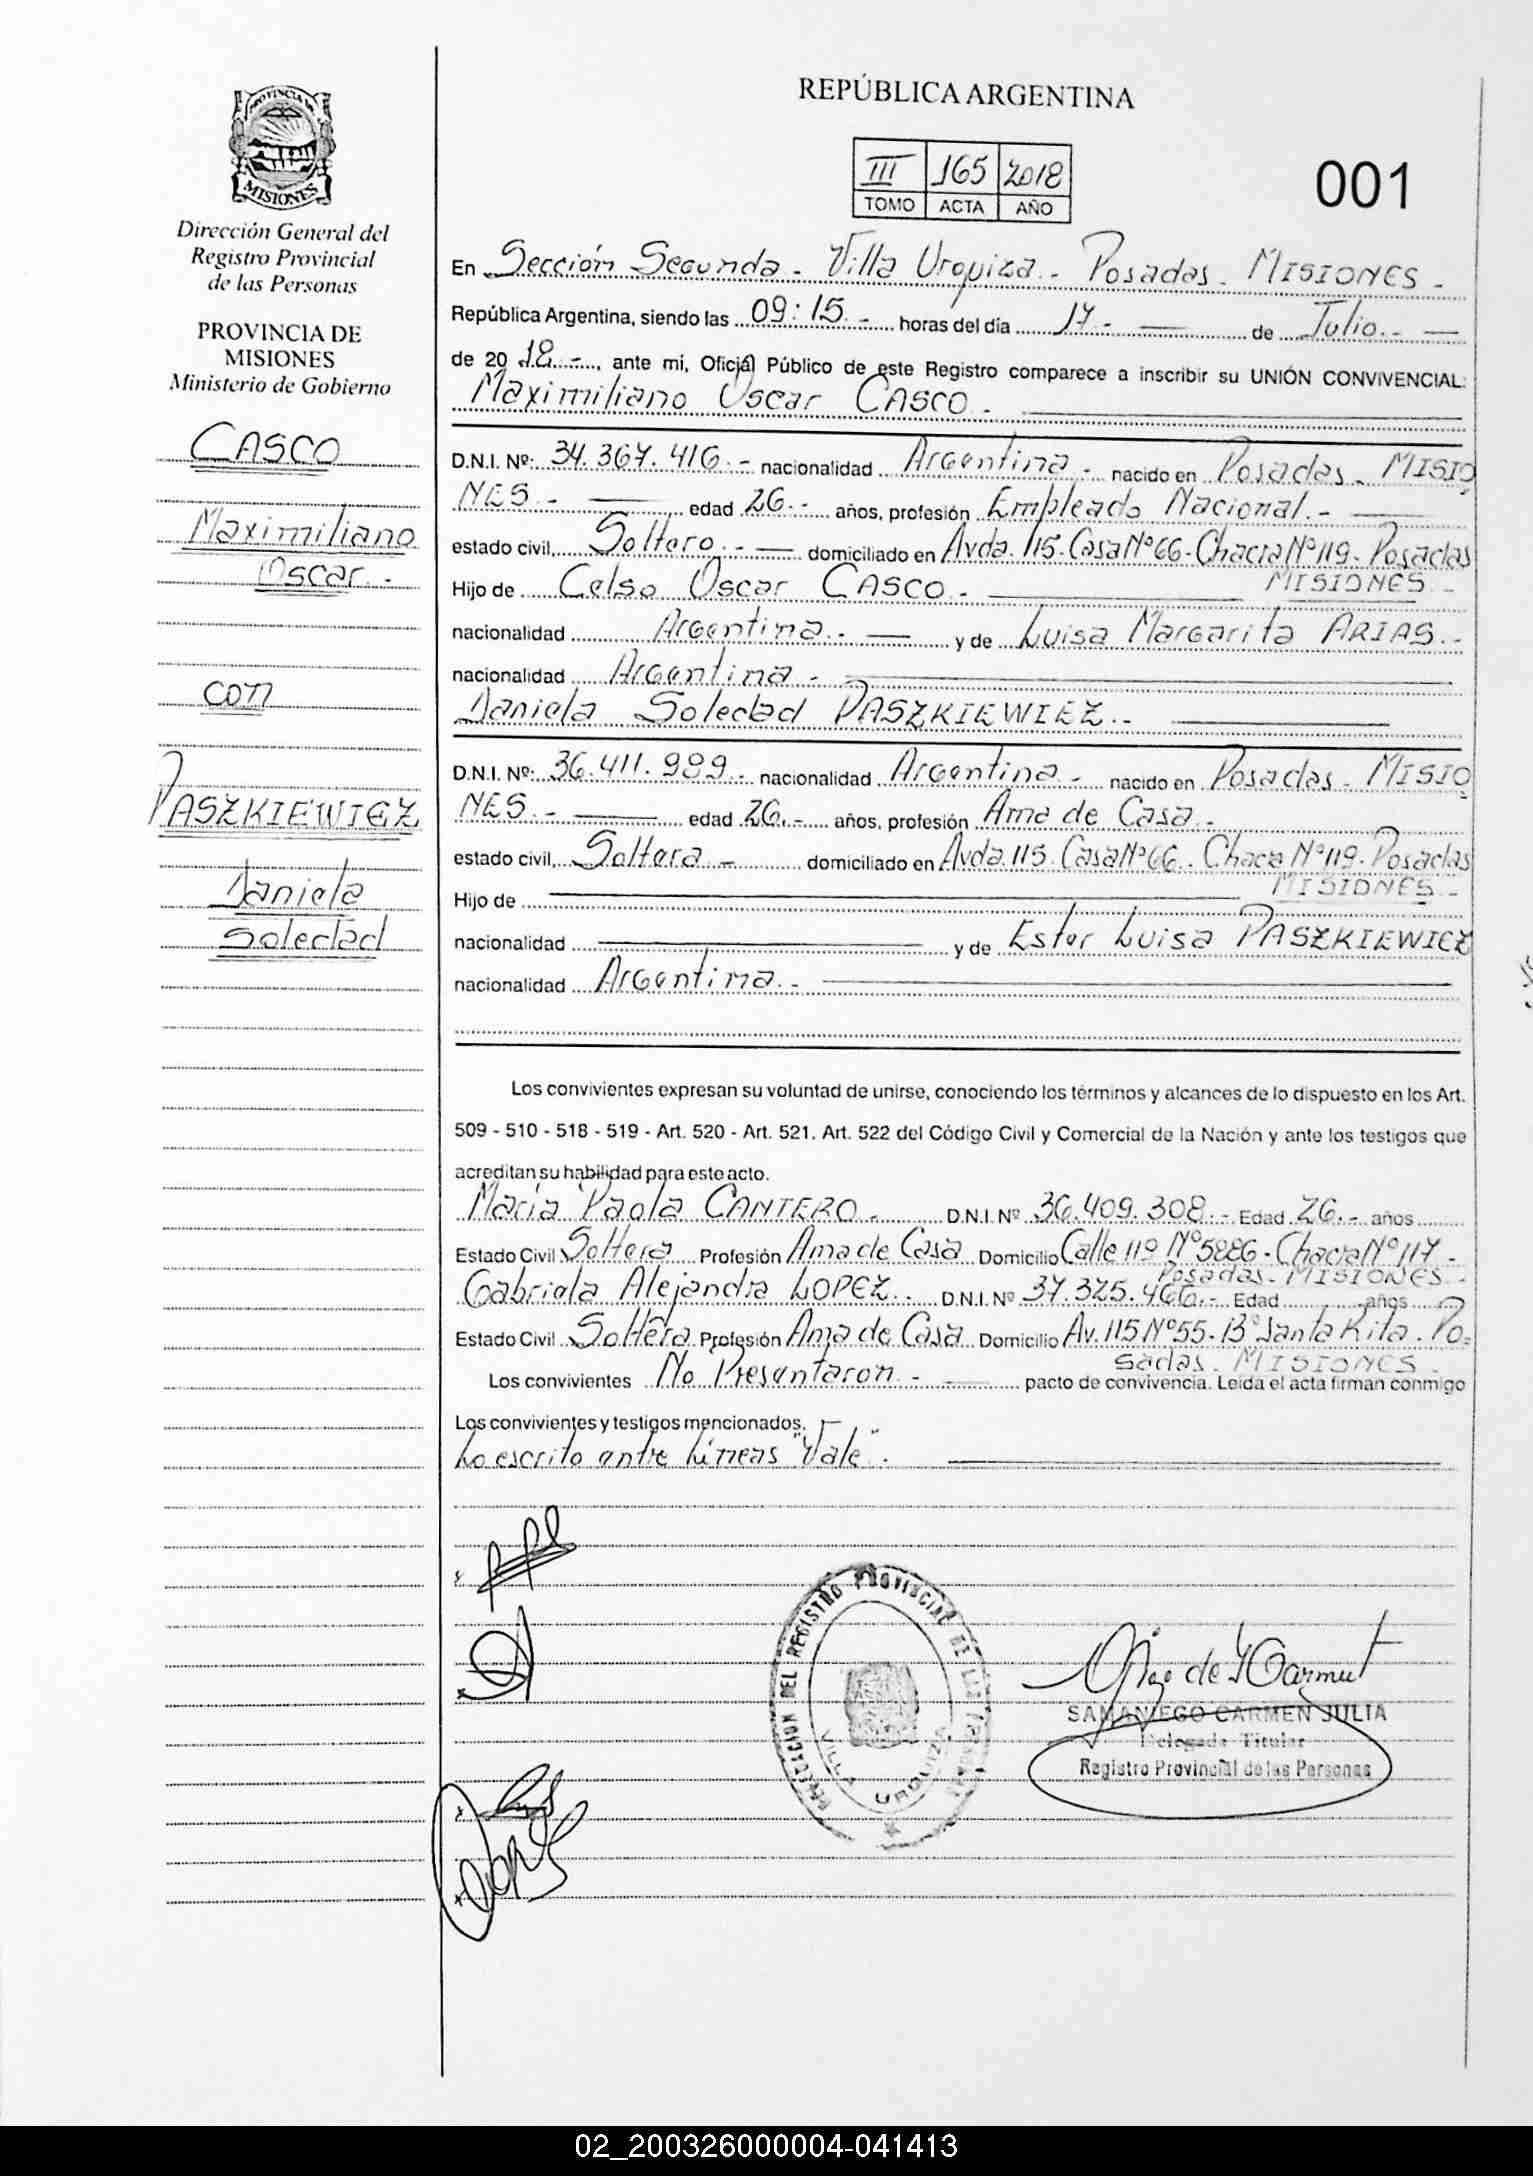 REPÚBLICA ARGENTINA
III 165 2018
TOMO ACTA AÑO
001
PROVINCIA DE
MISIONES
Dirección General del
Registro Provincial
de las Personas
PROVINCIA DE
MISIONES
Ministerio de Gobierno
CASCO
Maximiliano
Oscar.-
con
PASZKIEWIEZ
Daniela
Soledad
En Sección Segunda - Villa Urquiza - Posadas - MISIONES -
República Argentina, siendo las 09:15.- horas del día 17.- de Julio.-
de 2018.-, ante mi, Oficial Público de este Registro comparece a inscribir su UNIÓN CONVIVENCIAL:
Maximiliano Oscar CASCO.-
D.N.I. Nº: 34.367.416.- nacionalidad Argentina.- nacido en Posadas - MISIO
NES.- edad 26.- años, profesión Empleado Nacional.-
estado civil, Soltero.- domiciliado en Avda. 115. Casa Nº 66 - Chacra Nº 119 - Posadas
MISIONES.-
Hijo de Celso Oscar CASCO.-
nacionalidad Argentina.- y de Luisa Margarita ARIAS.-
nacionalidad Argentina.-
Daniela Soledad PASZKIEWIEZ.-
D.N.I. Nº: 36.411.989.- nacionalidad Argentina.- nacido en Posadas - MISIO
NES.- edad 26.- años, profesión Ama de Casa.-
estado civil, Soltera.- domiciliado en Avda. 115. Casa Nº 66. Chacra Nº 119. Posadas
MISIONES.-
Hijo de
nacionalidad y de Ester Luisa PASZKIEWIEZ
nacionalidad Argentina.-
Los convivientes expresan su voluntad de unirse, conociendo los términos y alcances de lo dispuesto en los Art.
509 - 510 - 518 - 519 - Art. 520 - Art. 521. Art. 522 del Código Civil y Comercial de la Nación y ante los testigos que
acreditan su habilidad para este acto.
María Paola CANTERO.- D.N.I. Nº 36.409.308.- Edad 26.- años
Estado Civil Soltera Profesión Ama de Casa Domicilio Calle 119 Nº 5886 - Chacra Nº 117 -
Posadas - MISIONES.-
Gabriela Alejandra LOPEZ.. D.N.I. Nº 37.325.466.- Edad años
Estado Civil Soltera Profesión Ama de Casa Domicilio Av. 115 Nº 55 - Bº Santa Rita. Po=
sadas - MISIONES.-
Los convivientes No Presentaron.- pacto de convivencia. Leída el acta firman conmigo
Los convivientes y testigos mencionados.
Lo escrito entre Líneas "Vale".
DIRECCION DEL REGISTRO PROVINCIAL DE LAS PERSONAS
VILLA URQUIZA
SAMANIEGO CARMEN JULIA
Delegada Titular
Registro Provincial de las Personas
02_200326000004-041413